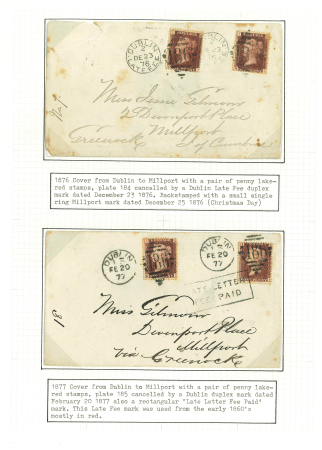 DUBLIN
2
DE 23
76
LATE FEE
Miss Jessie Gilmour
2 Devonport Place
Millport
Greenock
Cumbrae
1876 Cover from Dublin to Millport with a pair of penny lake-
red stamps, plate 184 cancelled by a Dublin Late Fee duplex
mark dated December 23 1876. Backstamped with a small single
ring Millport mark dated December 25 1876 (Christmas Day)
DUBLIN
FE 20
77
DUBLIN
FE 20
77
186
LATE LETTER
FEE PAID
Miss Gilmour
Devonport Place
Millport
Via Greenock
1877 Cover from Dublin to Millport with a pair of penny lake-
red stamps, plate 185 cancelled by a Dublin duplex mark dated
February 20 1877 also a rectangular "Late Letter Fee Paid"
mark. This Late Fee mark was used from the early 1860's
mostly in red.